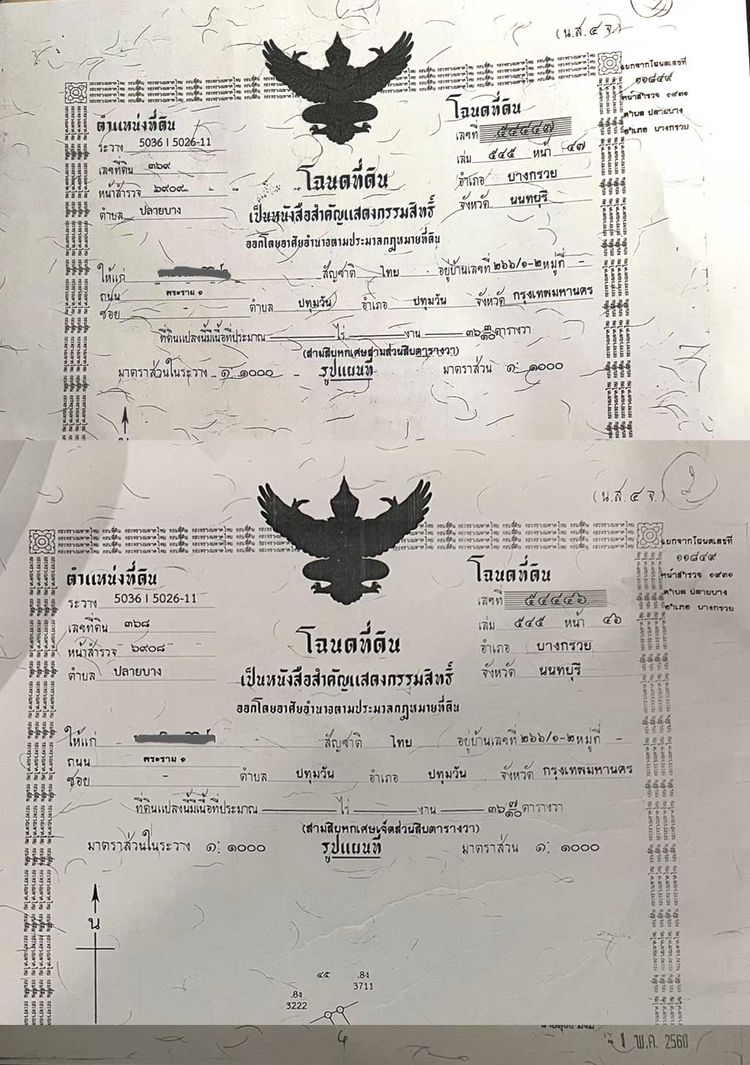 (น.ส.๔ จ.)
แยกจากโฉนดเลขที่
๑๑๘๔๙
หน้าสำรวจ ๑๙๓๑
ตำบล ปลายบาง
อำเภอ บางกรวย
ตำแหน่งที่ดิน
ระวาง 5036 I 5026-11
เลขที่ดิน ๓๖๙
หน้าสำรวจ ๖๙๐๙
ตำบล ปลายบาง
โฉนดที่ดิน
เลขที่ ๕๔๔๔๗
เล่ม ๕๔๕ หน้า ๔๗
อำเภอ บางกรวย
จังหวัด นนทบุรี
โฉนดที่ดิน
เป็นหนังสือสำคัญแสดงกรรมสิทธิ์
ออกโดยอาศัยอำนาจตามประมวลกฎหมายที่ดิน
ให้แก่ สัญชาติ ไทย อยู่บ้านเลขที่ ๒๖๖/๑-๒ หมู่ที่ -
ถนน พระราม ๑
ซอย - ตำบล ปทุมวัน อำเภอ ปทุมวัน จังหวัด กรุงเทพมหานคร
ที่ดินแปลงนี้มีเนื้อที่ประมาณ ไร่ งาน ๓๖ ๓/๑๐ ตารางวา
(สามสิบหกเศษสามส่วนสิบตารางวา)
มาตราส่วนในระวาง ๑: ๑๐๐๐ รูปแผนที่ มาตราส่วน ๑: ๑๐๐๐
น
(น.ส.๔ จ.) 2
แยกจากโฉนดเลขที่
๑๑๘๔๙
หน้าสำรวจ ๑๙๓๑
ตำบล ปลายบาง
อำเภอ บางกรวย
ตำแหน่งที่ดิน
ระวาง 5036 I 5026-11
เลขที่ดิน ๓๖๘
หน้าสำรวจ ๖๙๐๘
ตำบล ปลายบาง
โฉนดที่ดิน
เลขที่ ๕๔๔๔๖
เล่ม ๕๔๕ หน้า ๔๖
อำเภอ บางกรวย
จังหวัด นนทบุรี
โฉนดที่ดิน
เป็นหนังสือสำคัญแสดงกรรมสิทธิ์
ออกโดยอาศัยอำนาจตามประมวลกฎหมายที่ดิน
ให้แก่ - สัญชาติ ไทย อยู่บ้านเลขที่ ๒๖๖/๑-๒ หมู่ที่ -
ถนน พระราม ๑
ซอย - ตำบล ปทุมวัน อำเภอ ปทุมวัน จังหวัด กรุงเทพมหานคร
ที่ดินแปลงนี้มีเนื้อที่ประมาณ ไร่ งาน ๓๖ ๗/๑๐ ตารางวา
(สามสิบหกเศษเจ็ดส่วนสิบตารางวา)
มาตราส่วนในระวาง ๑: ๑๐๐๐ รูปแผนที่ มาตราส่วน ๑: ๑๐๐๐
น
๔๕
.8ง
3711
.8ง
3222
1 พ.ค. 2560